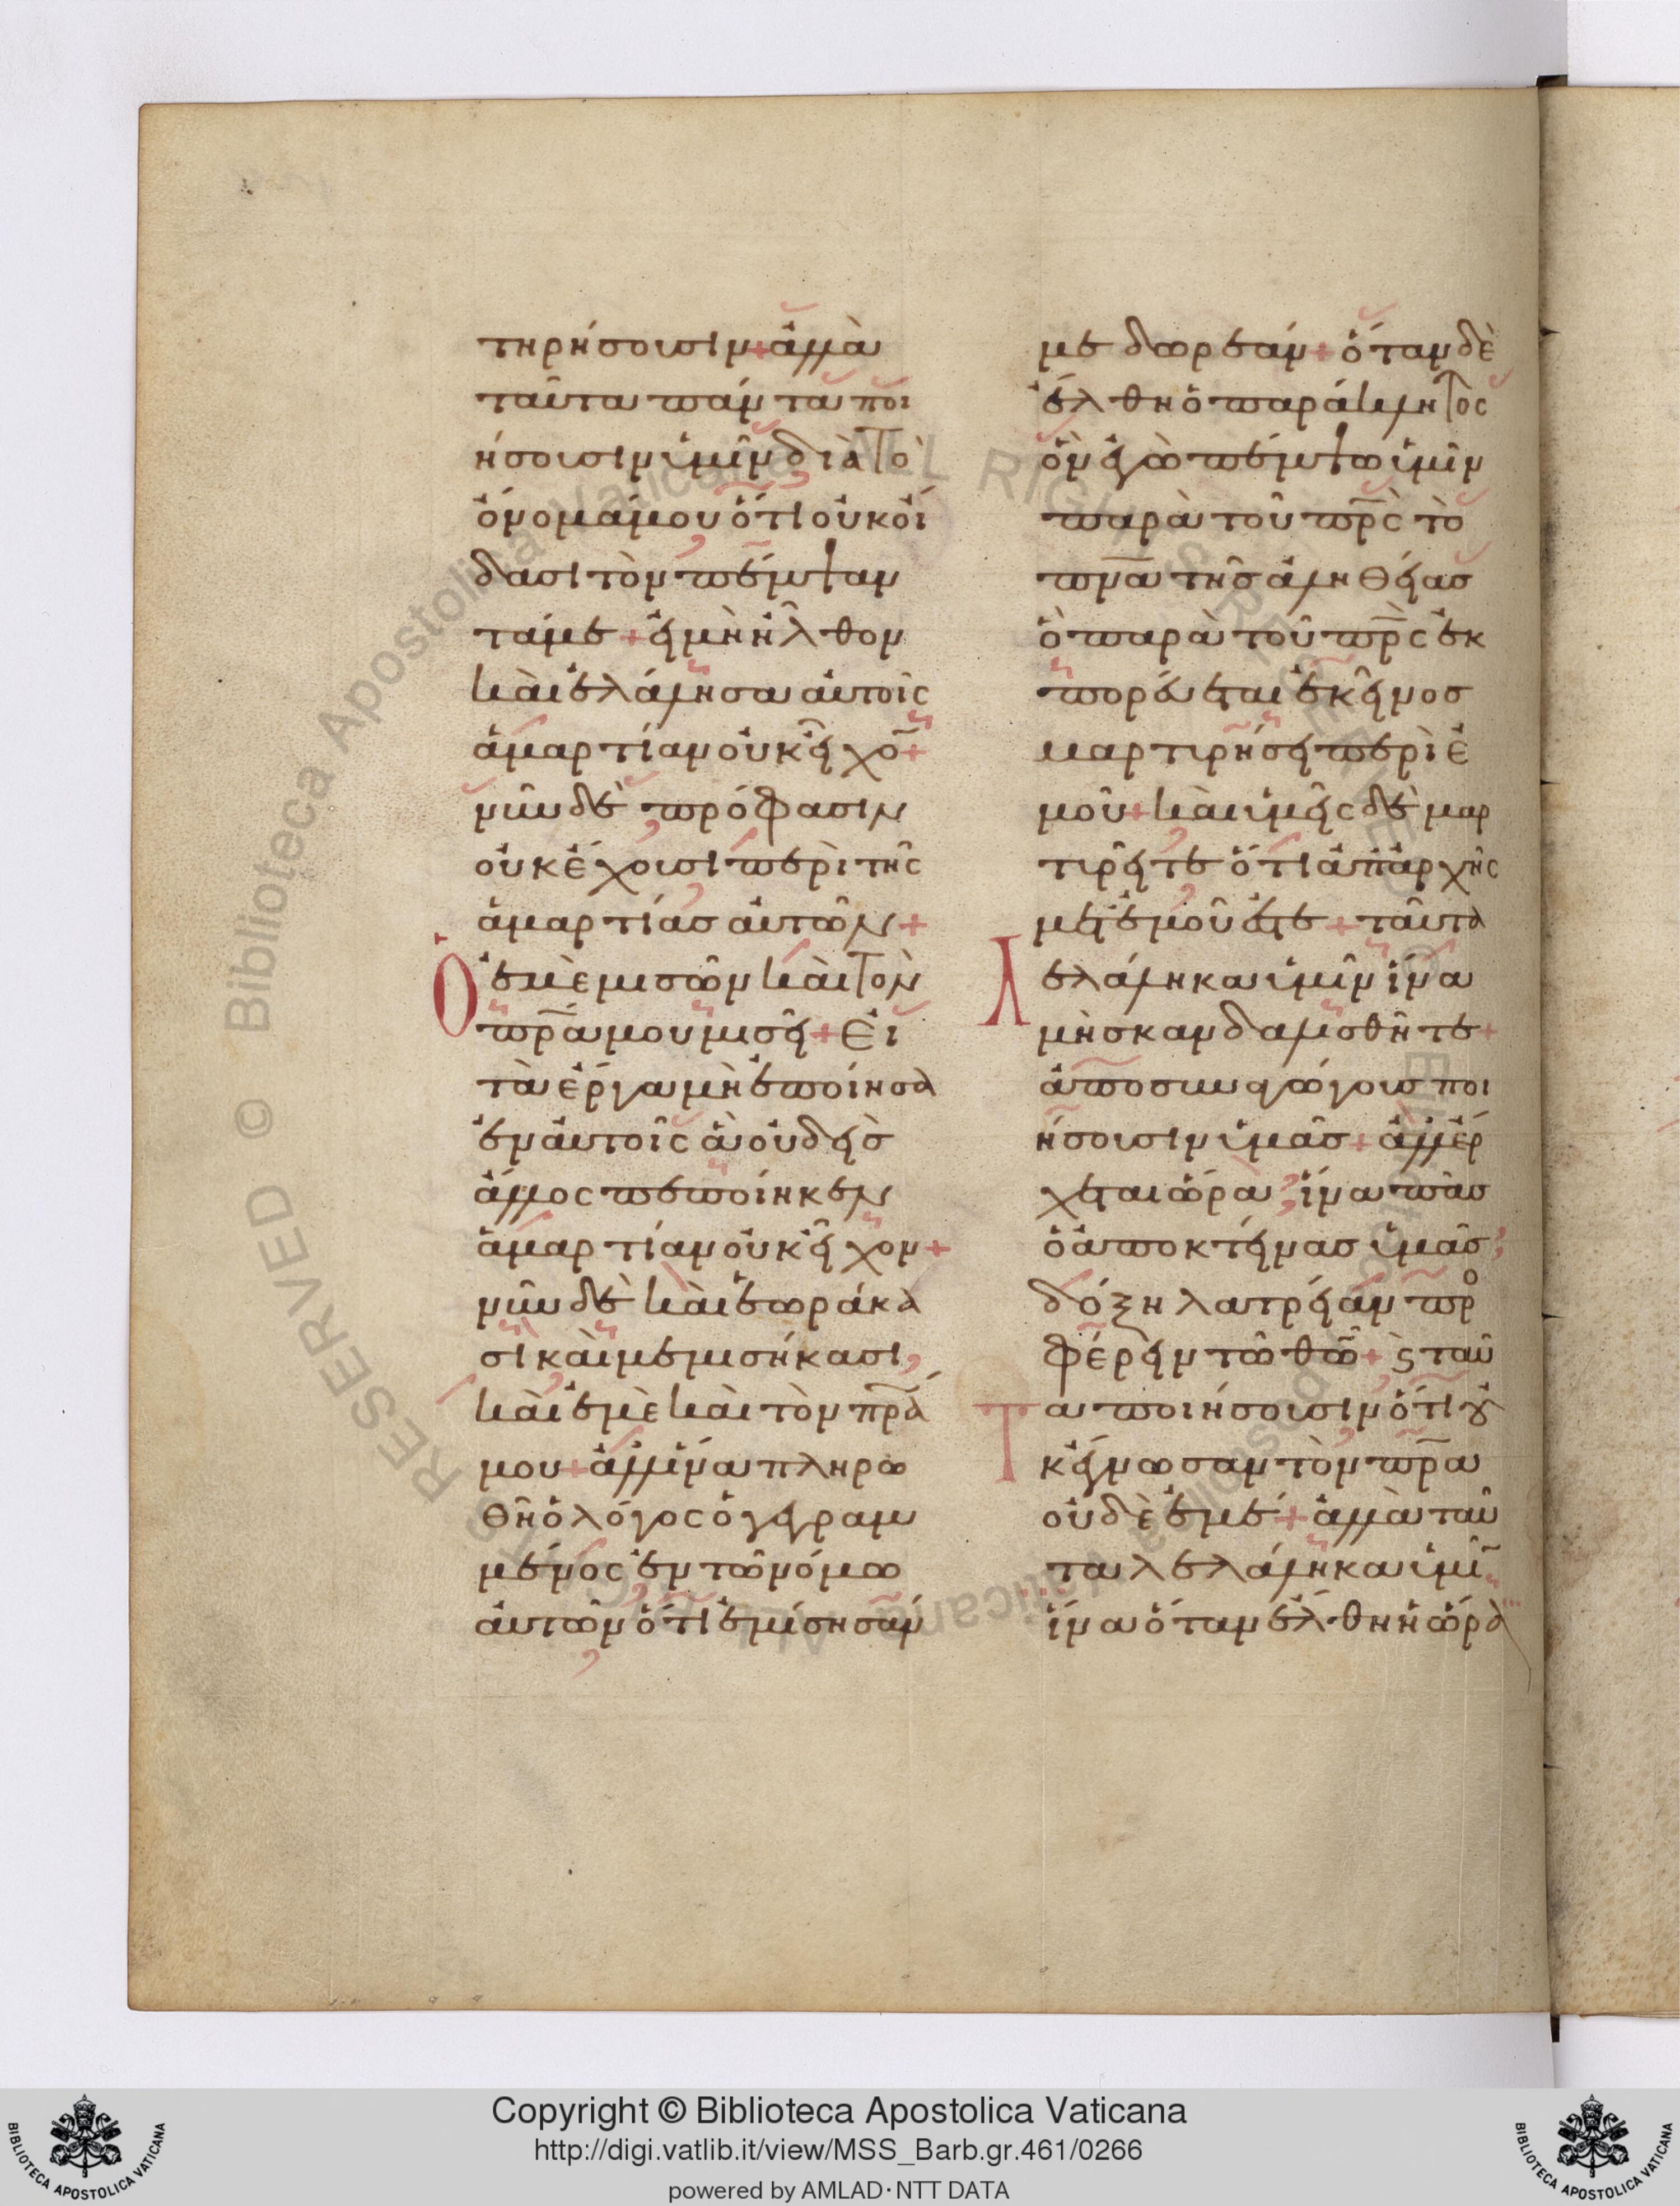 τηρήσουσιν + ἀλλὰ
ταῦτα πάντα ποι
ήσουσιν ὑμῖν διὰ τὸ
ὄνομά μου ὅτι οὐκ οἴ
δασι τὸν πέμψαν
τά με + εἰ μὴ ἦλθον
καὶ ἐλάλησα αὐτοῖς
ἁμαρτίαν οὐκ εἶχο̅ +
νῦν δὲ πρόφασιν
οὐκ ἔχουσι περὶ τῆς
ἁμαρτίας αὐτῶν +
Ὁ ἐμὲ μισῶν καὶ τὸν
π̅ρ̅α μου μισεῖ + Εἰ
τὰ ἔργα μὴ ἐποίησα
ἐν αὐτοῖς ἃ οὐδεὶς
ἄλλος πεποίηκεν
ἁμαρτίαν οὐκ εἶχον +
νῦν δὲ καὶ ἑωράκα
σι καὶ μεμισήκασι,
καὶ ἐμὲ καὶ τὸν π̅ρ̅α
μου + ἀλλ' ἵνα πληρω
θῇ ὁ λόγος ὁ γεγραμ
μένος ἐν τῷ νόμω
αὐτῶν ὅτι ἐμίσησάν
με δωρεάν + ὅταν δὲ
ἔλθη ὁ παράκλητος
ὃν ἐγὼ πέμψω ὑμῖν
παρὰ τοῦ π̅ρ̅ς τὸ
π̅ν̅α τῆς ἀληθείας
ὃ παρὰ τοῦ π̅ρ̅ς ἐκ
πορεύεται ἐκεῖνος
μαρτυρήσει περὶ ἐ
μοῦ + καὶ ὑμεῖς δὲ μαρ
τυρεῖτε ὅτι ἀπ' ἀρχῆς
μετ' ἐμοῦ ἐστε + ταῦτα
λελάληκα ὑμῖν ἵνα
μὴ σκανδαλισθῆτε +
ἀποσυναγώγους ποι
ήσουσιν ὑμᾶς + ἀλλ' ἔρ
χεται ὥρα, ἵνα πᾶς
ὁ ἀποκτείνας ὑμᾶς,
δόξη λατρείαν προ
φέρειν τῷ θ̅ω̅ + ϗ ταῦ
Τα ποιήσουσιν ὅτι οὐ
κ ἔγνωσαν τὸν π̅ρ̅α
οὐδὲ ἐμέ + ἀλλὰ ταῦ
τα λελάληκα ὑμῖ̅
ἵνα ὅταν ἔλθη ἡ ὥρα
Copyright © Biblioteca Apostolica Vaticana
http://digi.vatlib.it/view/MSS_Barb.gr.461/0266
powered by AMLAD·NTT DATA